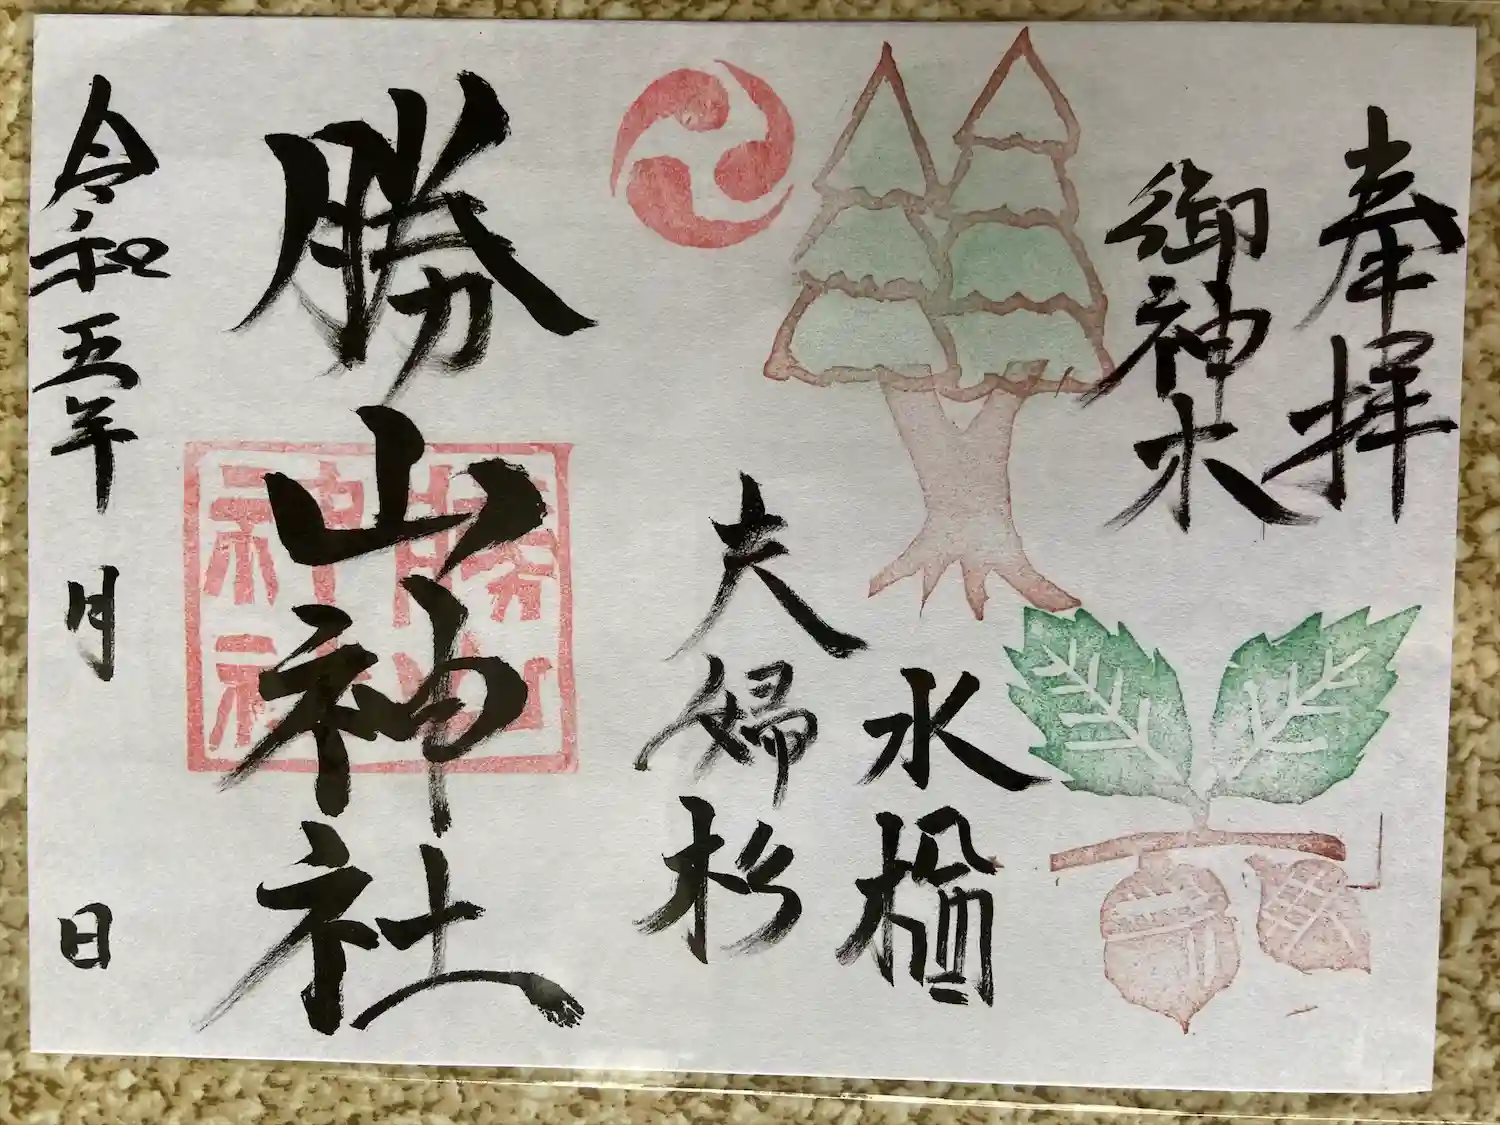 奉拝
御神木
水楢
夫婦杉
勝山神社
勝山
神社
令和五年 月 日